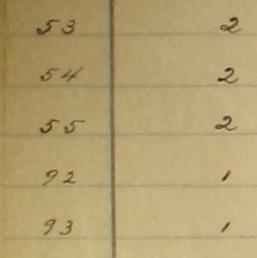 53 2
54 2
55 2
92 1
93 1